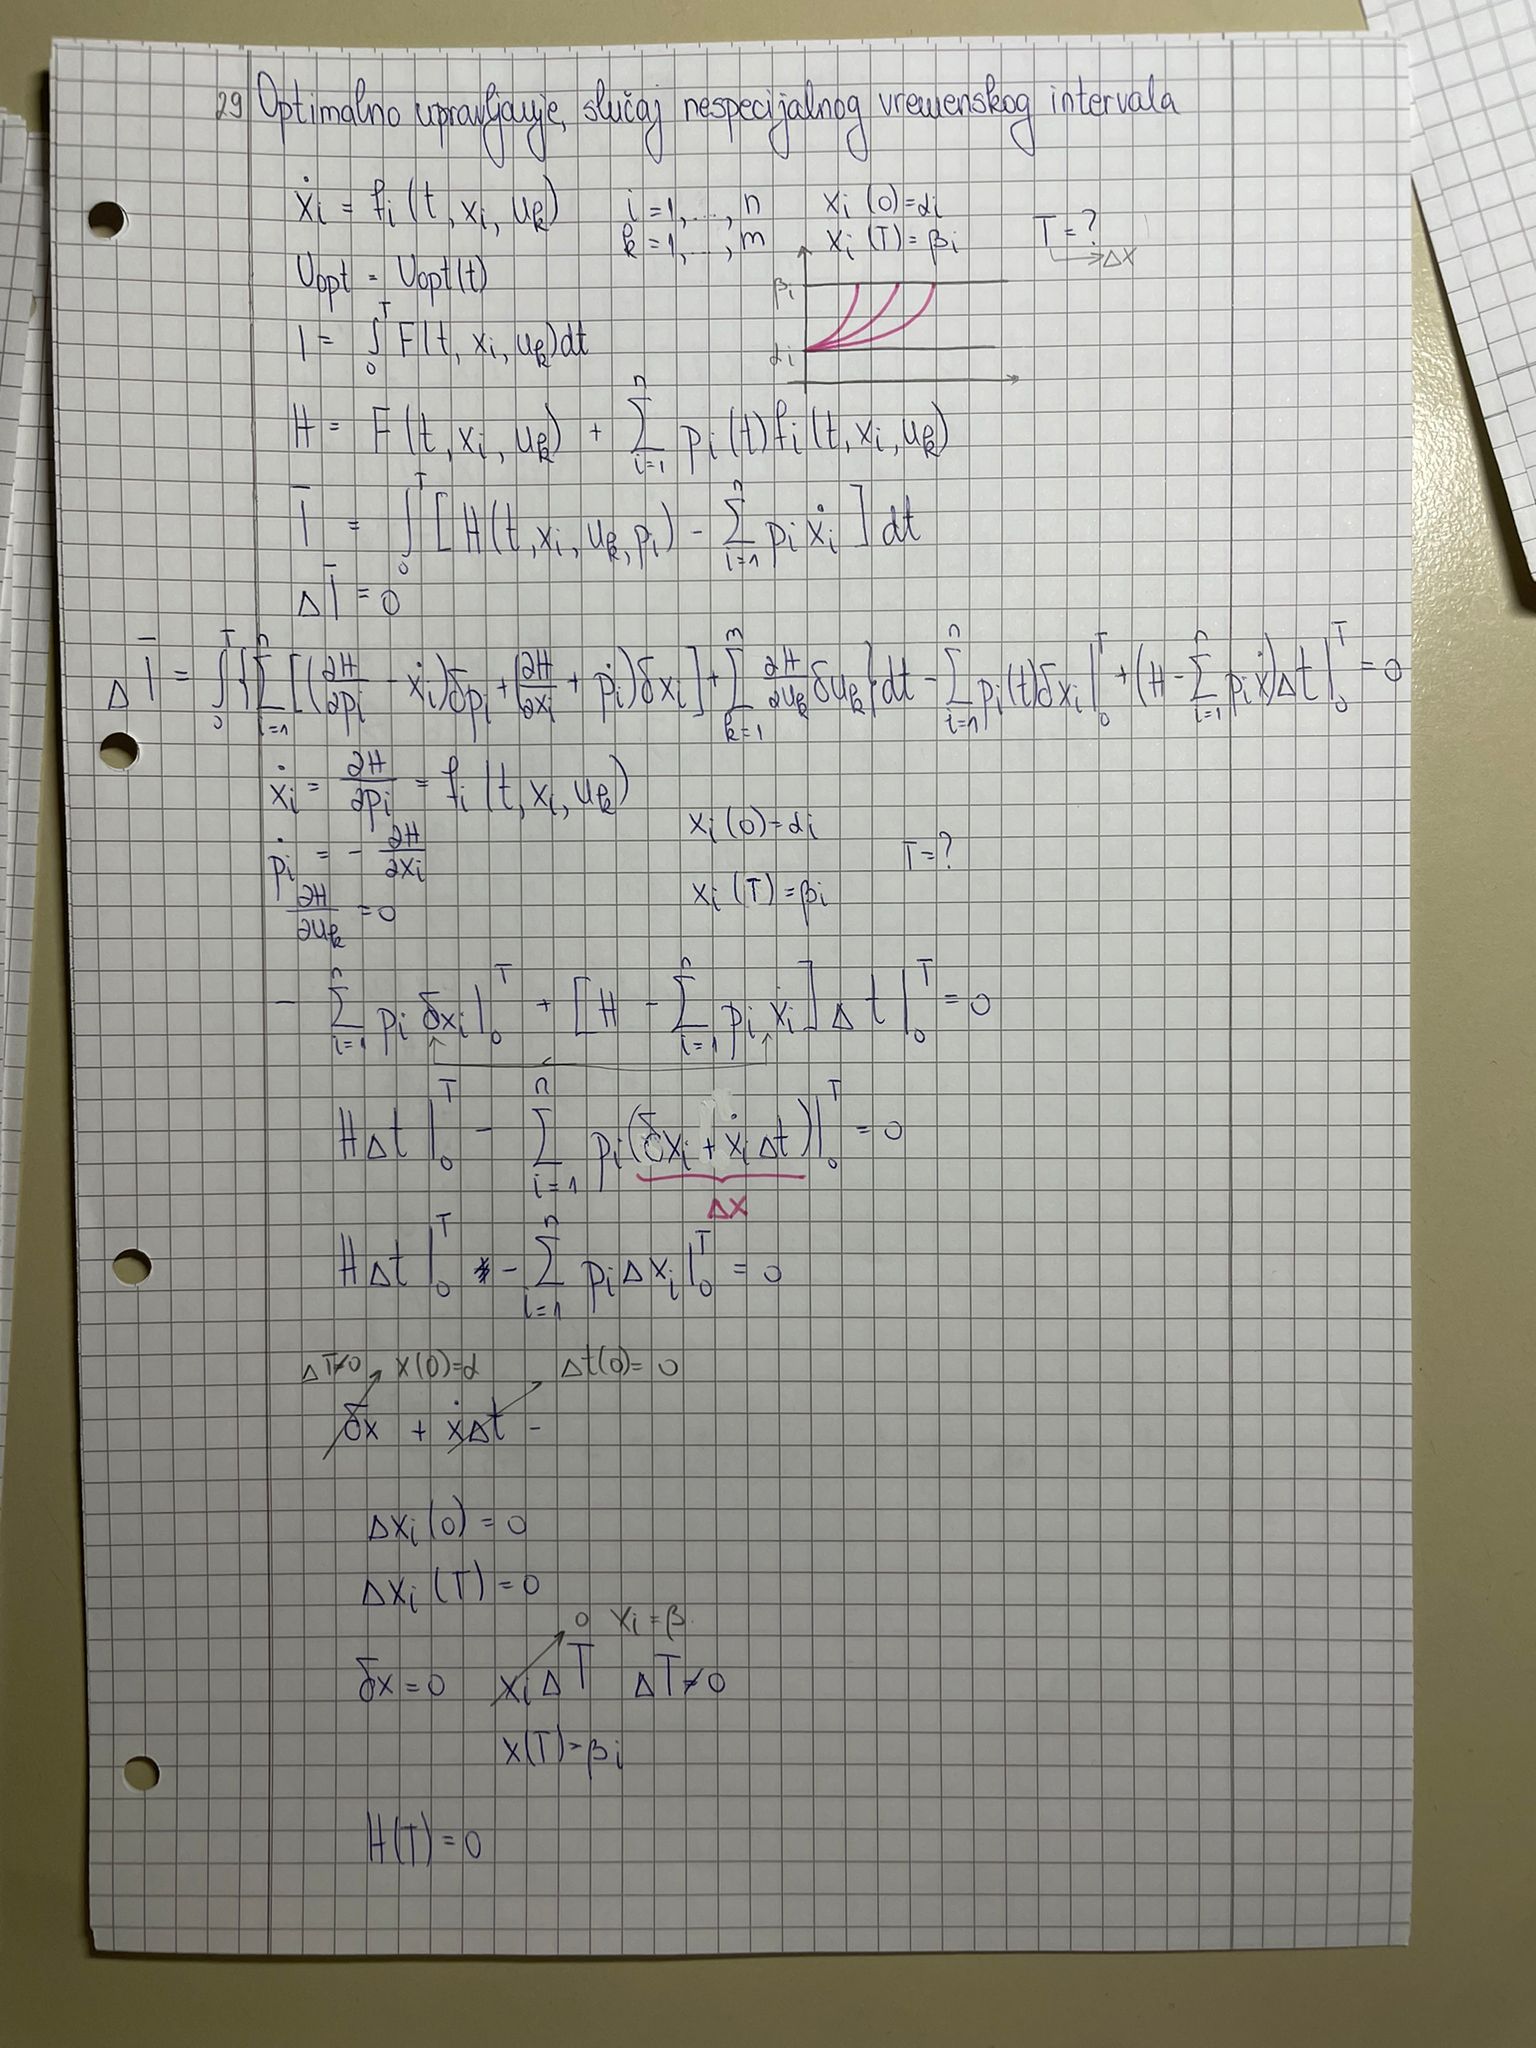 29 Optimalno upravljanje, slučaj nespecijalnog vremenskog intervala
ẋi = fi (t, xi, uk) i = 1, ..., n xi (0) = αi
k = 1, ..., m xi (T) = βi T = ?
→ Δx
Uopt = Uopt(t)
βi
I = ∫₀ᵀ F(t, xi, uk) dt
αi
H = F(t, xi, uk) + Σ_{i=1}^{n} pi(t) fi(t, xi, uk)
Ī = ∫₀ᵀ [H(t, xi, uk, pi) - Σ_{i=1}^{n} pi ẋi] dt
ΔĪ = 0
ΔĪ = ∫₀ᵀ {Σ_{i=1}^{n} [(∂H/∂pi - ẋi) δpi + (∂H/∂xi + ṗi) δxi] + Σ_{k=1}^{m} ∂H/∂uk δuk} dt - Σ_{i=1}^{n} pi(t) δxi |₀ᵀ + (H - Σ_{i=1}^{n} pi ẋ) Δt |₀ᵀ = 0
ẋi = ∂H/∂pi = fi (t, xi, uk)
xi (0) = αi
ṗi = - ∂H/∂xi T = ?
xi (T) = βi
∂H/∂uk = 0
- Σ_{i=1}^{n} pi δxi |₀ᵀ + [H - Σ_{i=1}^{n} pi ẋi] Δt |₀ᵀ = 0
HΔt |₀ᵀ - Σ_{i=1}^{n} pi (δxi + ẋi Δt) |₀ᵀ = 0
Δx
HΔt |₀ᵀ - Σ_{i=1}^{n} pi Δxi |₀ᵀ = 0
ΔT≠0 x(0)=α Δt(0)= 0
δx + ẋΔt -
Δxi (0) = 0
Δxi (T) = 0
0 xi = β
δx = 0 xi ΔT ΔT≠0
x(T) = βi
H(T) = 0